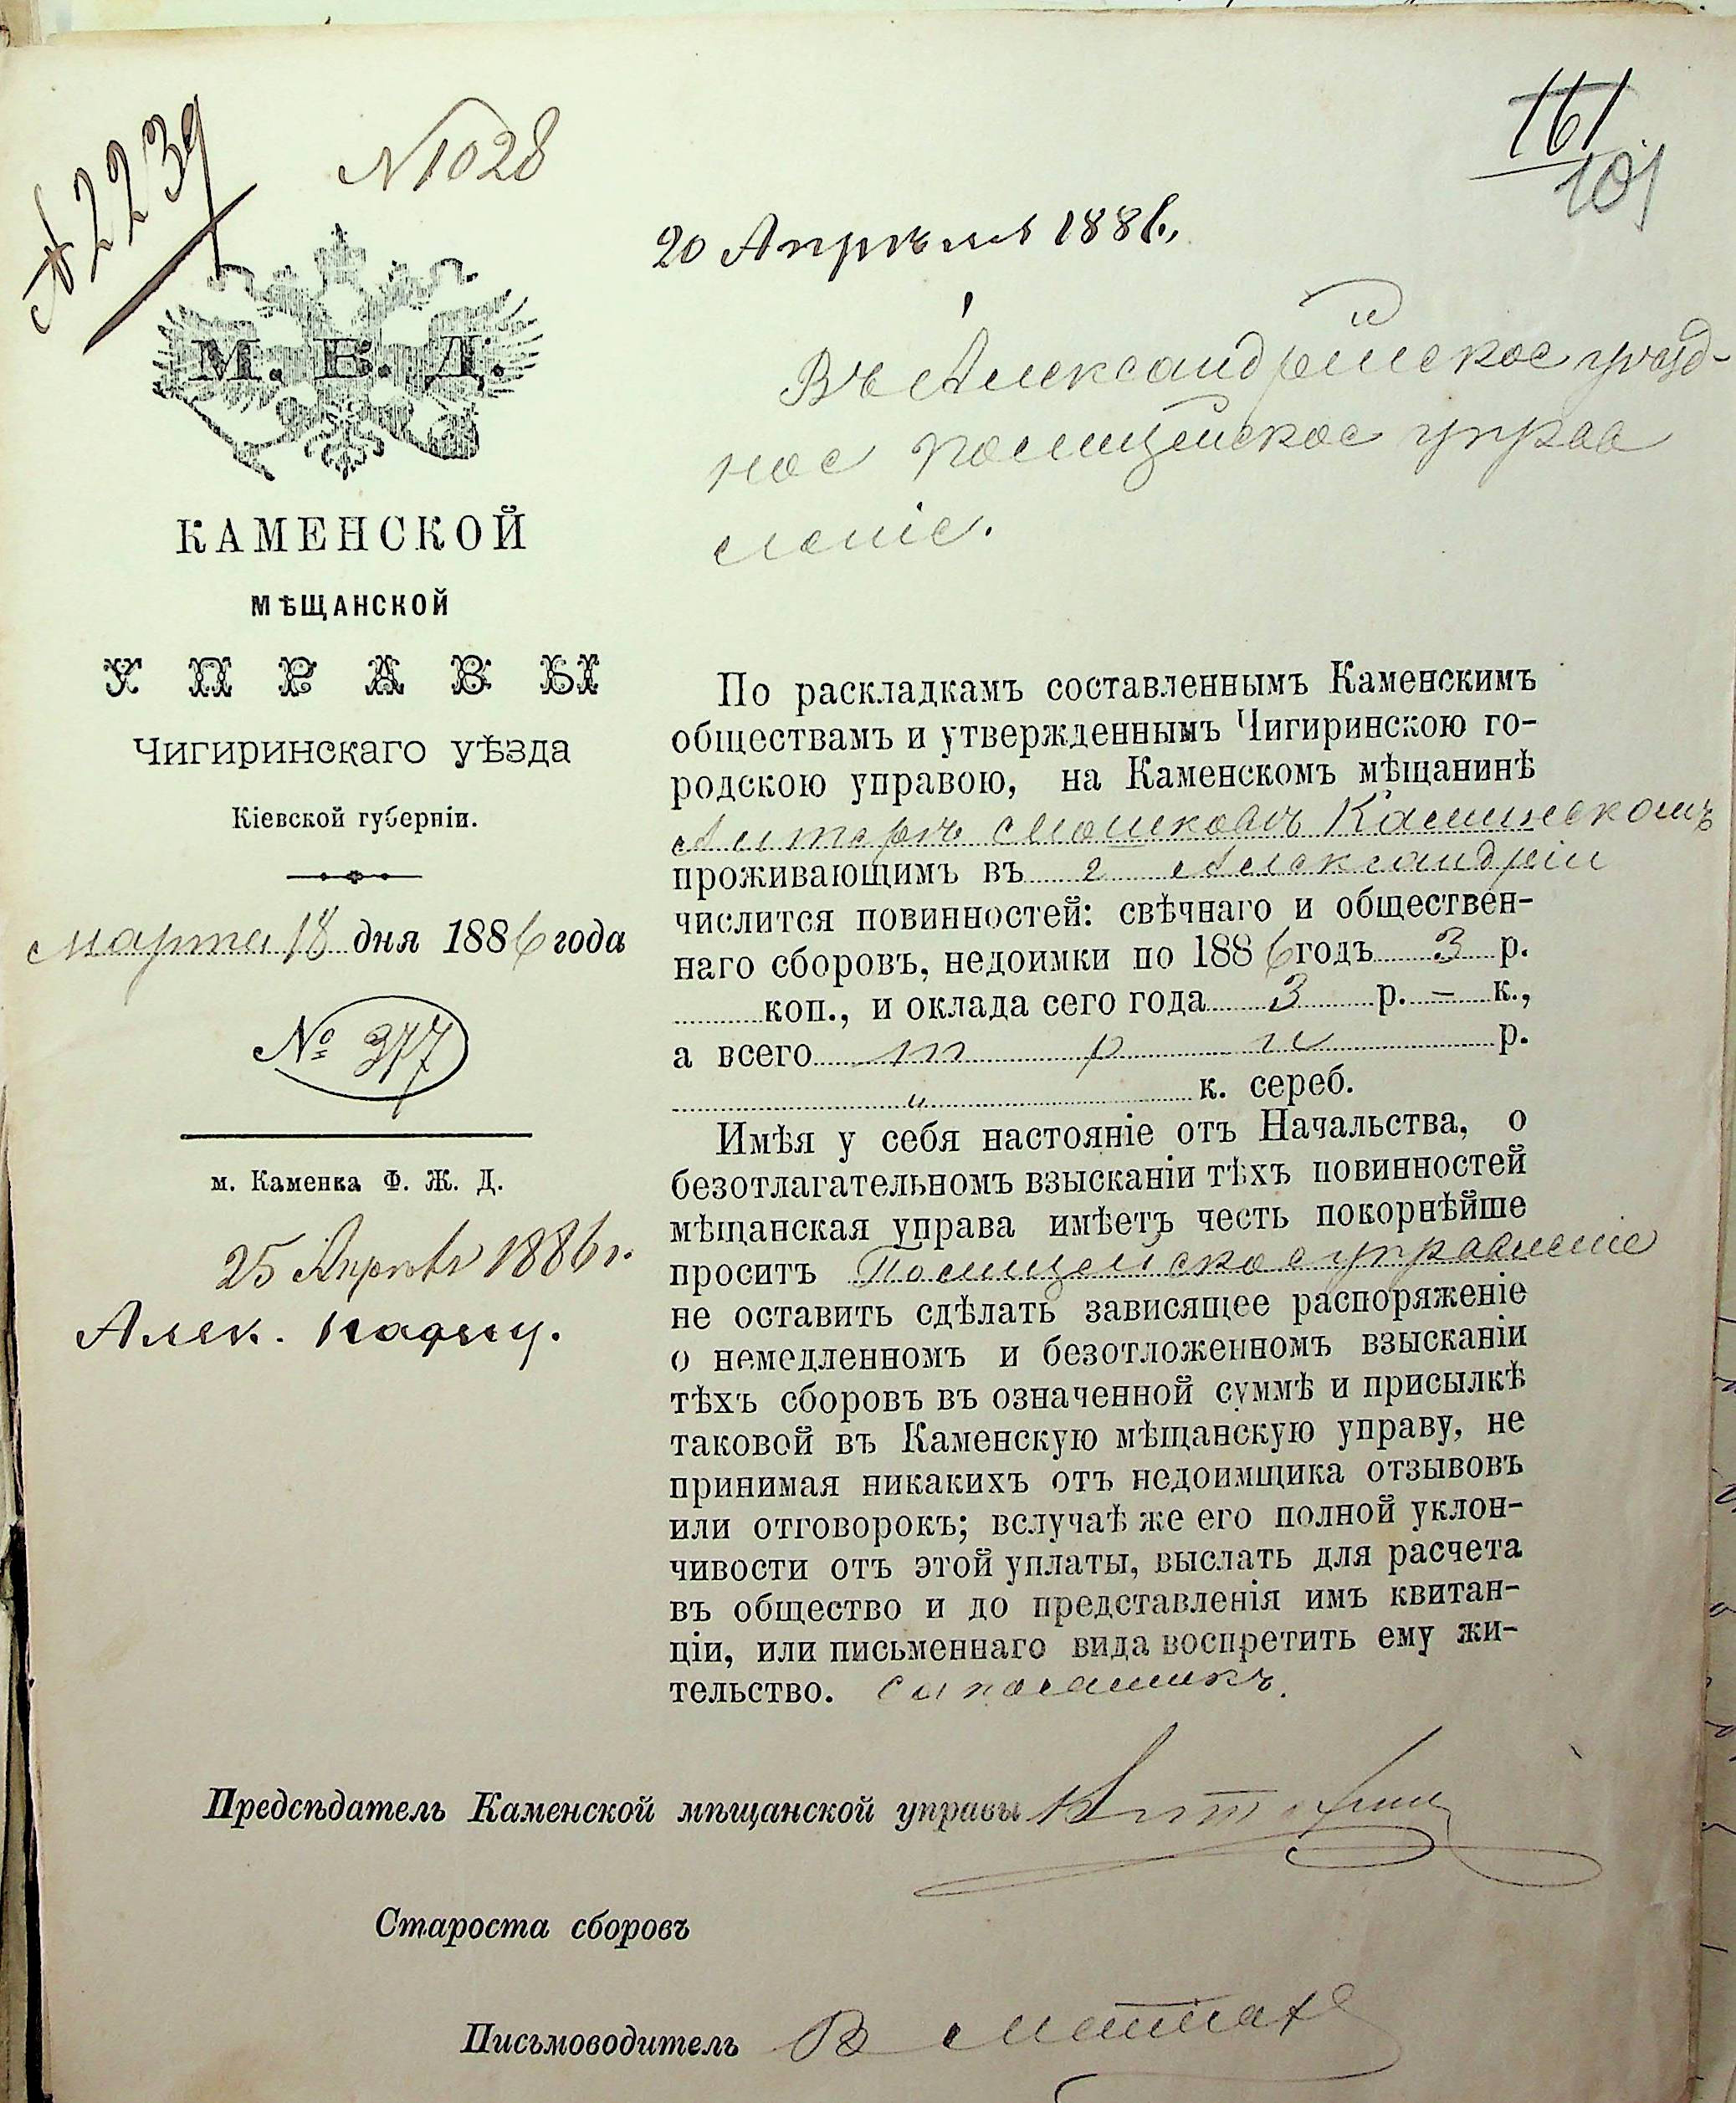 № 2239
№ 1028
161
101
20 Апрѣля 1886 г.
М. В. Д.
КАМЕНСКОЙ
МѢЩАНСКОЙ
УПРАВЫ
Чигиринскаго уѣзда
Кіевской губерніи.
марта 18 дня 1886 года
№ 377
м. Каменка Ф. Ж. Д.
25 Апрѣля 1886 г.
Алек.
Въ Александрійское уѣзд-
ное полицейское управ
леніе.
По раскладкамъ составленнымъ Каменскимъ
обществамъ и утвержденнымъ Чигиринскою го-
родскою управою, на Каменскомъ мѣщанинѣ
Алтерѣ Мошковѣ Каминскомъ
проживающимъ въ г Александріи
числится повинностей: свѣчнаго и обществен-
наго сборовъ, недоимки по 1886 годъ 3 р.
коп., и оклада сего года 3 р. – к.,
а всего три р.
" к. сереб.
Имѣя у себя настояніе отъ Начальства, о
безотлагательномъ взысканіи тѣхъ повинностей
мѣщанская управа имѣетъ честь покорнѣйше
проситъ Полицейское управленіе
не оставить сдѣлать зависящее распоряженіе
о немедленномъ и безотложенномъ взысканіи
тѣхъ сборовъ въ означенной суммѣ и присылкѣ
таковой въ Каменскую мѣщанскую управу, не
принимая никакихъ отъ недоимщика отзывовъ
или отговорокъ; вслучаѣ же его полной уклон-
чивости отъ этой уплаты, выслать для расчета
въ общество и до представленія имъ квитан-
ціи, или письменнаго вида воспретить ему жи-
тельство.
Предсѣдатель Каменской мѣщанской управы
Староста сборовъ
Письмоводитель В